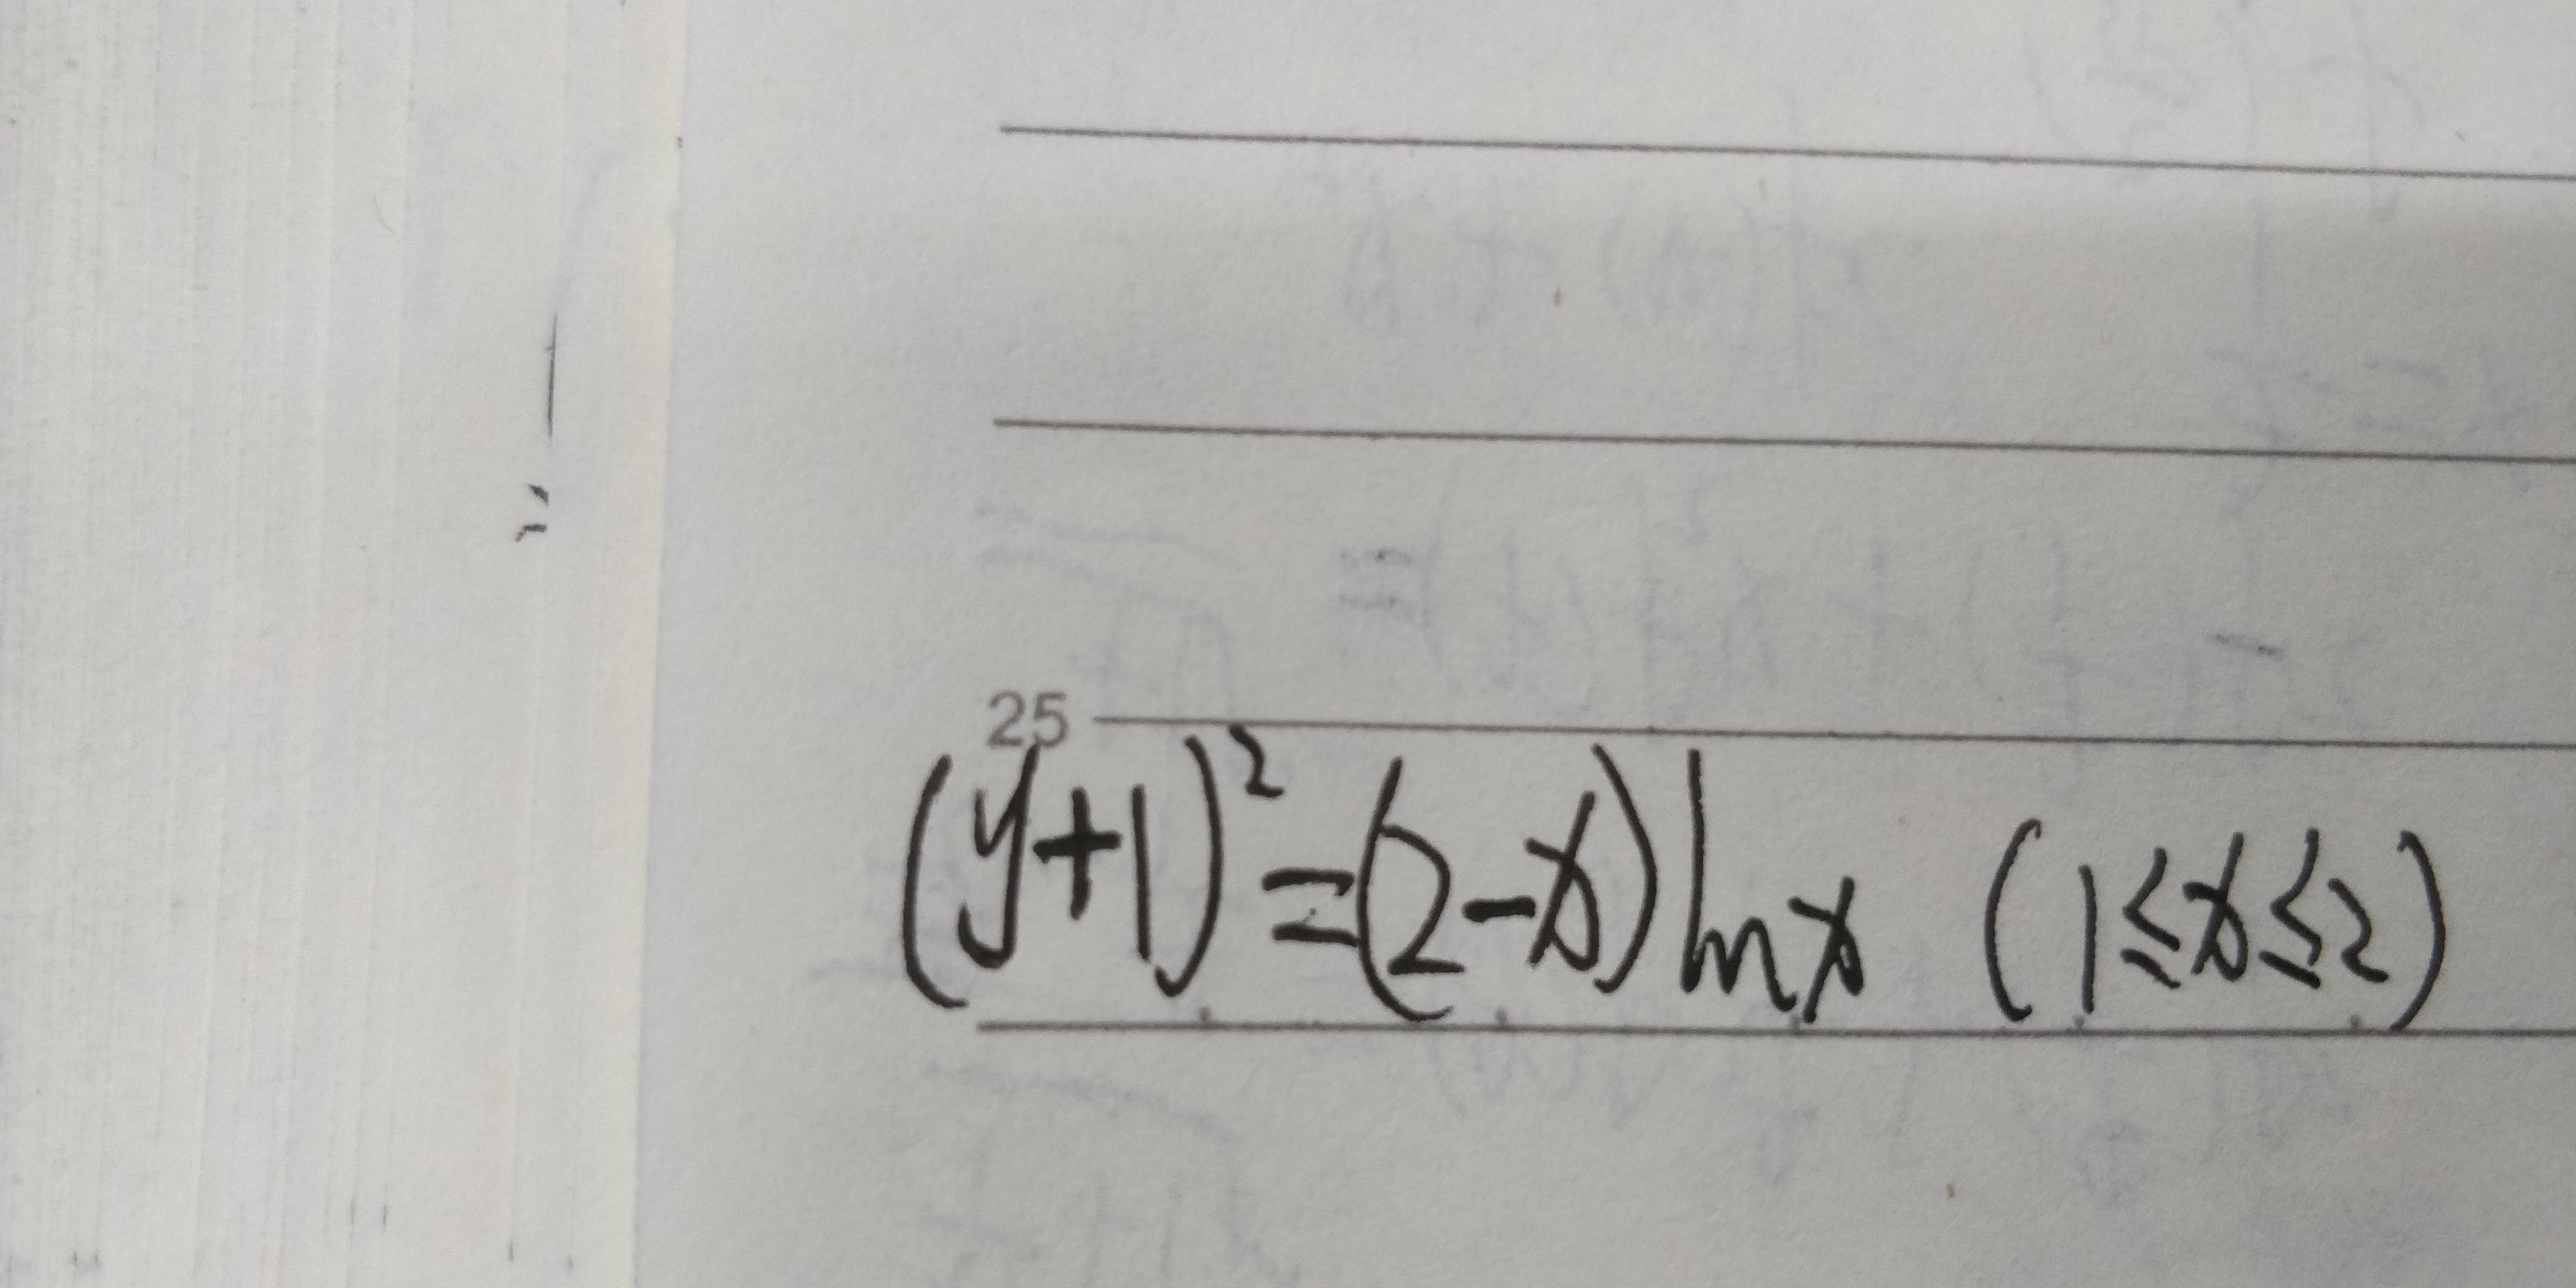 25
(y+1)²=(2-x)lnx (1≤x≤2)